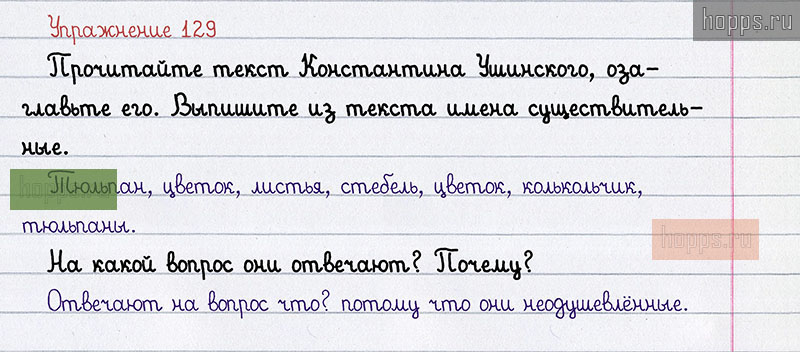 hopps.ru
Упражнение 129
Прочитайте текст Константина Ушинского, оза-
главьте его. Выпишите из текста имена существитель-
ные.
hopps.ru
Тюльпан, цветок, листья, стебель, цветок, колькольчик,
тюльпаны.
hopps.ru
На какой вопрос они отвечают? Почему?
Отвечают на вопрос что? потому что они неодушевлённые.